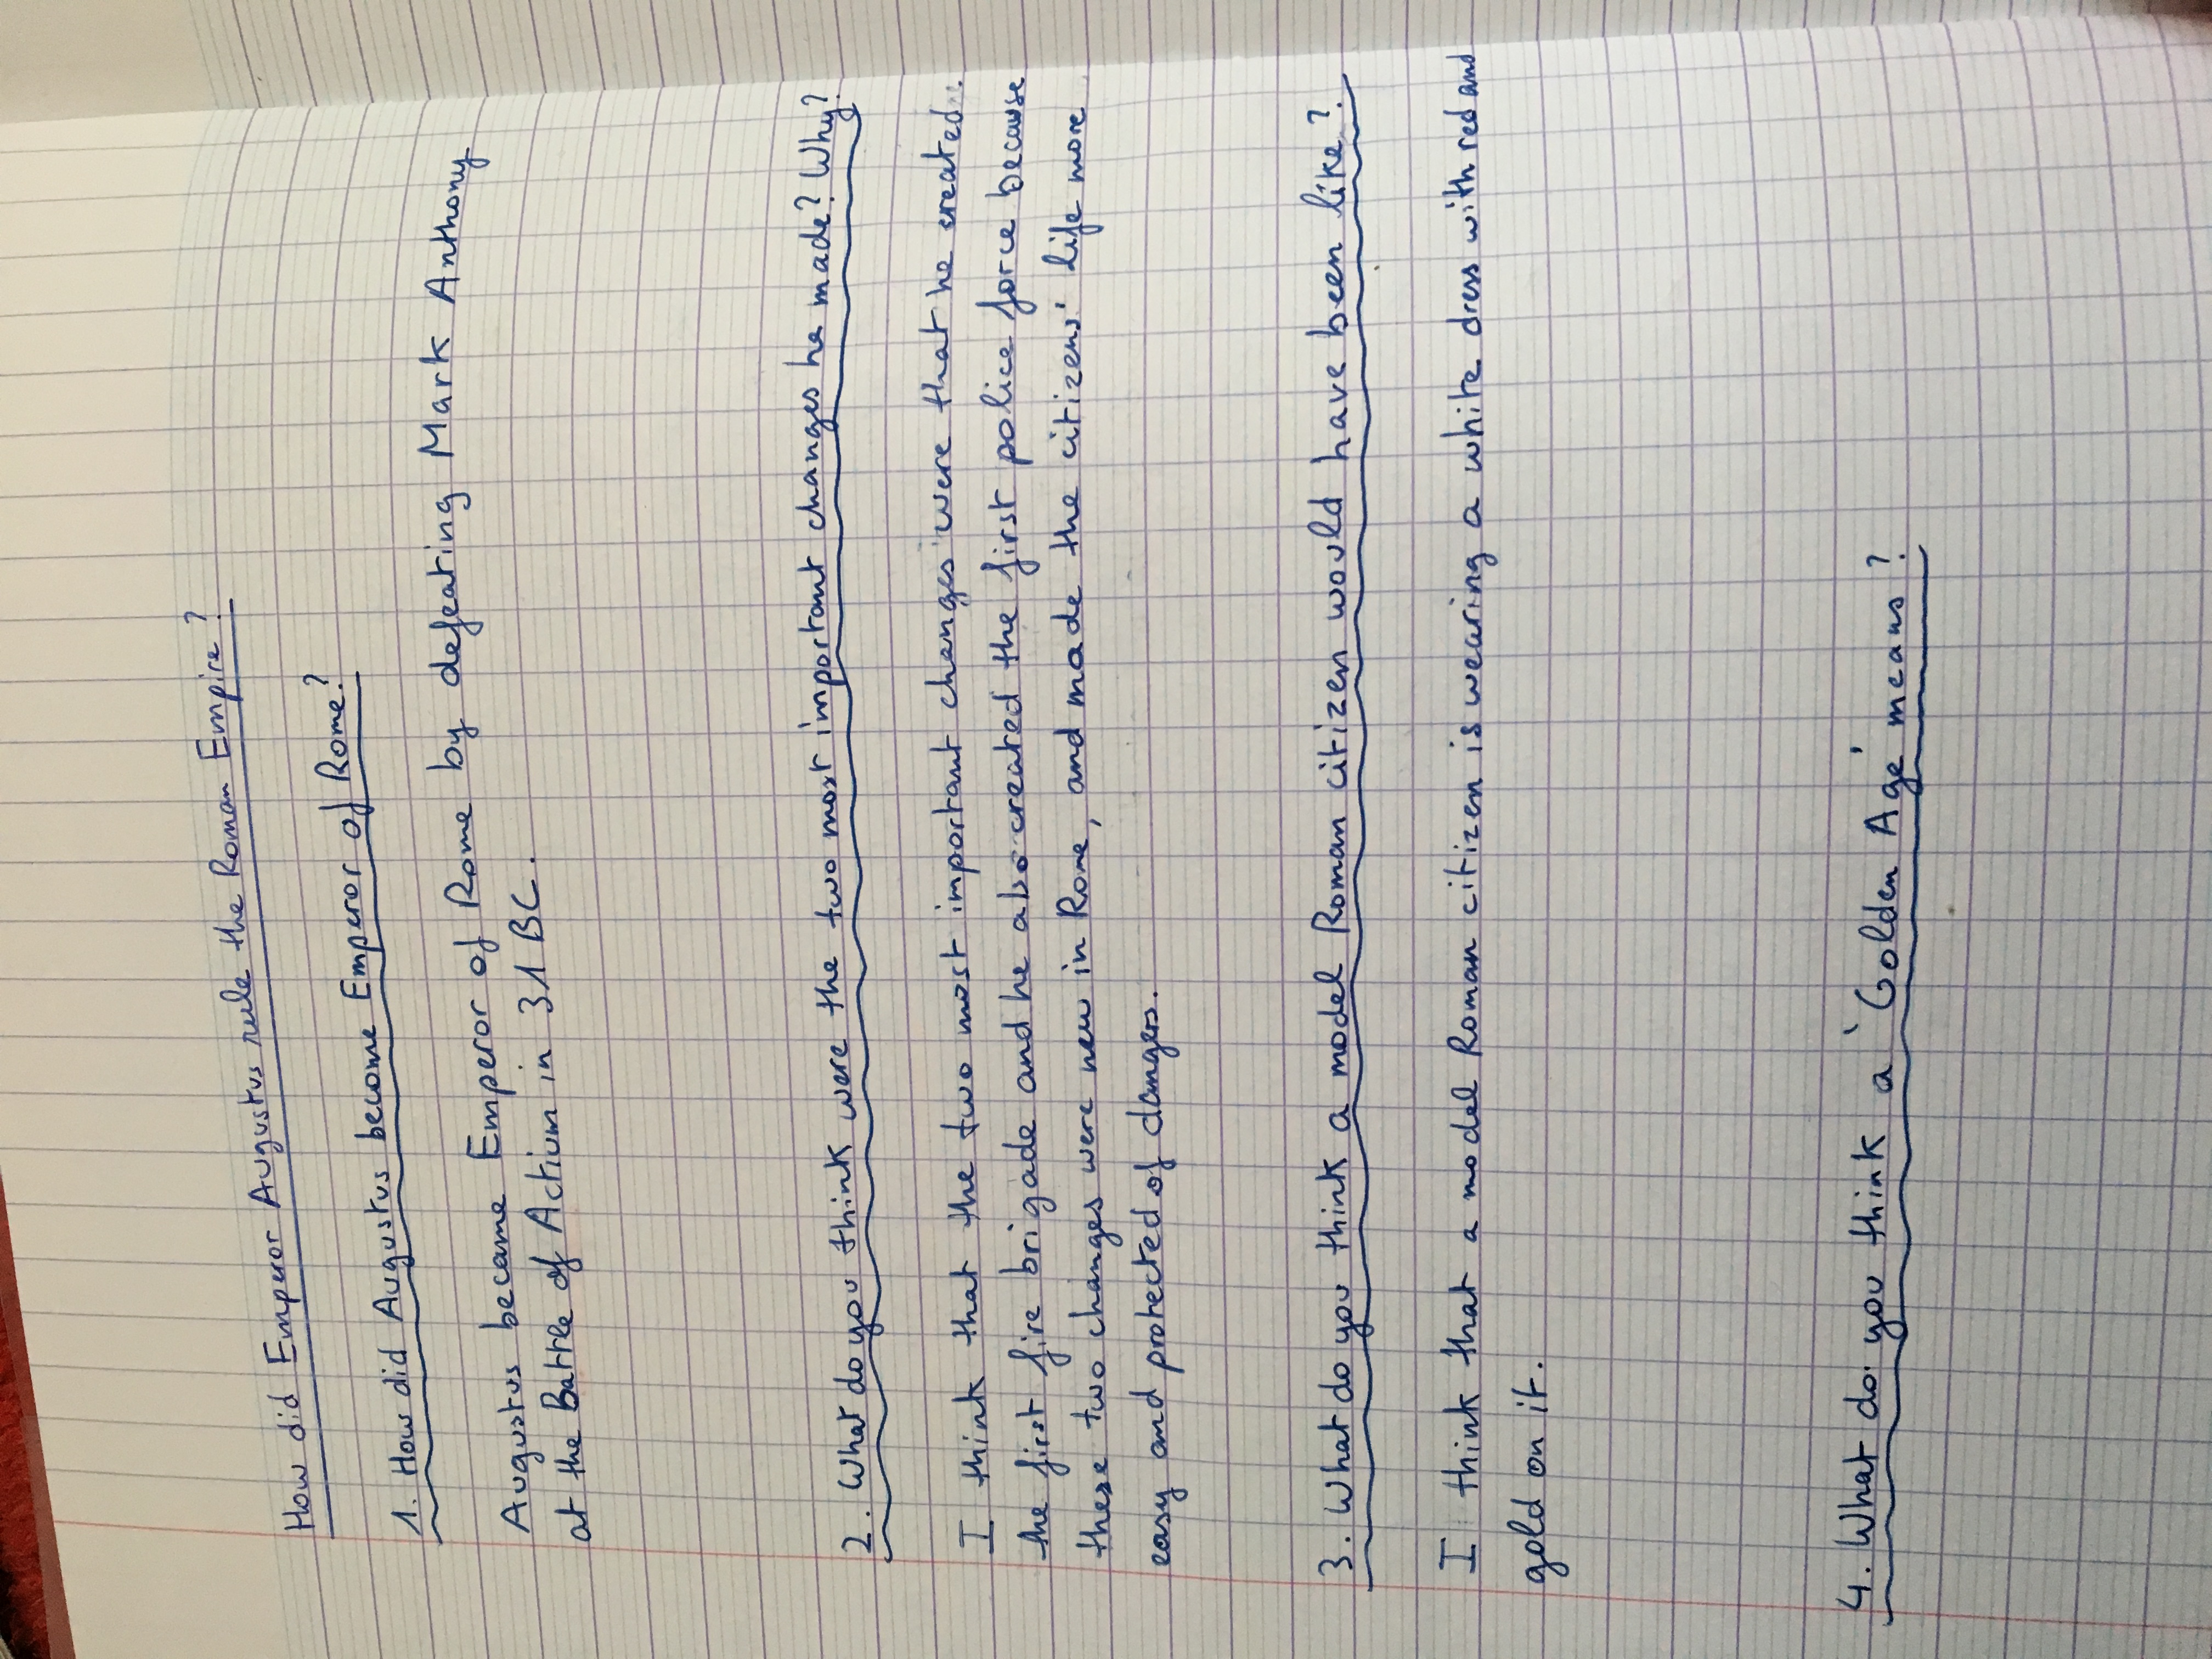 How did Emperor Augustus rule the Roman Empire?
1. How did Augustus become Emperor of Rome?
Augustus became Emperor of Rome by defeating Mark Anthony
at the Battle of Actium in 31 BC.
2. What do you think were the two most important changes he made? Why?
I think that the two most important changes were that he created
the first fire brigade and he also created the first police force because
these two changes were new in Rome, and made the citizens' life more
easy and protected of dangers.
3. What do you think a model Roman citizen would have been like?
I think that a model Roman citizen is wearing a white dress with red and
gold on it.
4. What do you think a 'Golden Age' means?